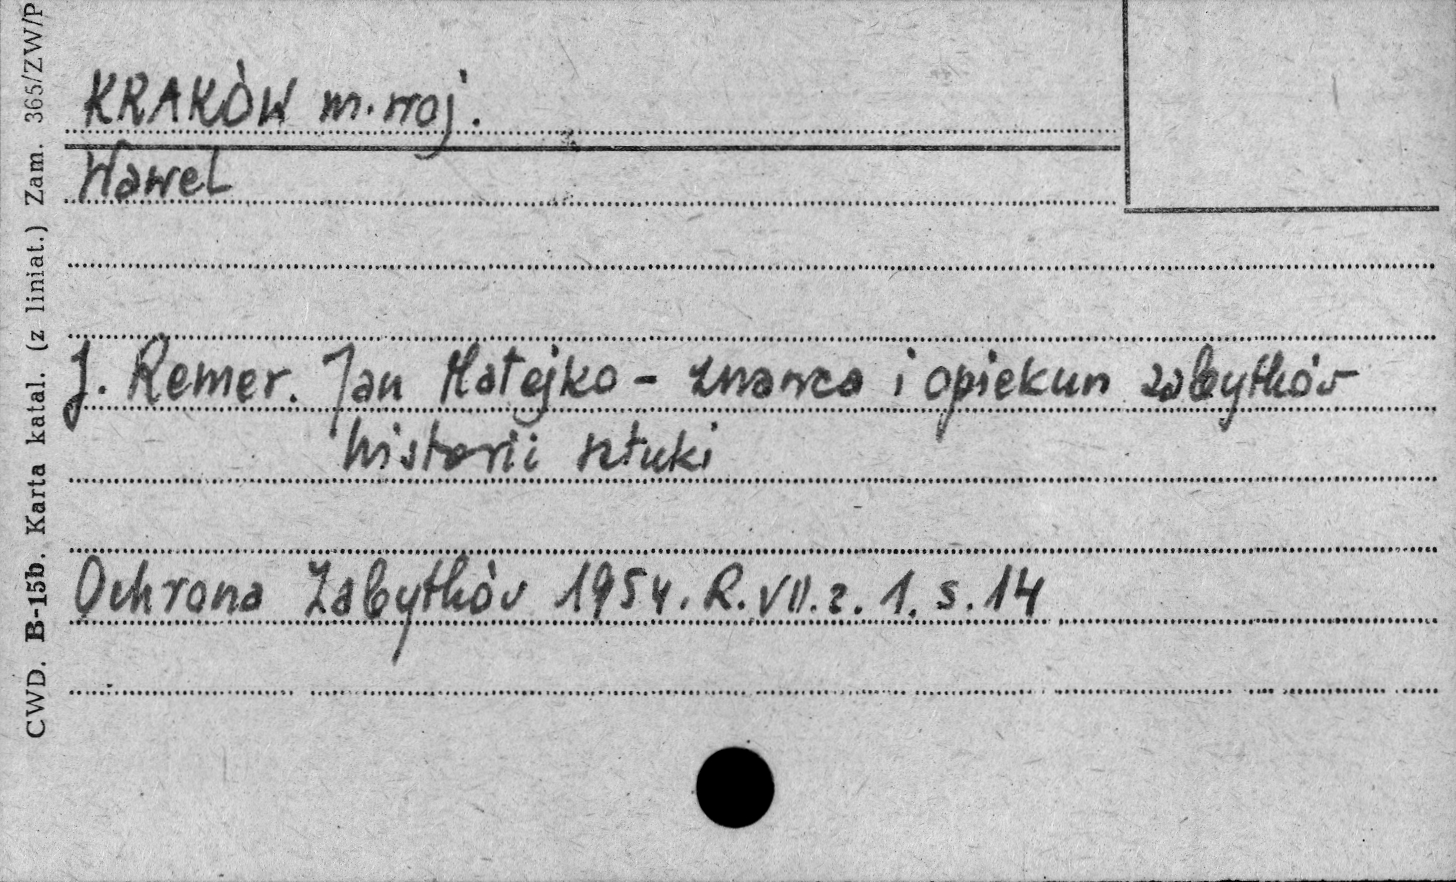 KRAKÓW m. woj.
Wawel
J. Remer. Jan Matejko - znawca i opiekun zabytków
historii sztuki
Ochrona Zabytków 1954. R. VII. z. 1. s. 14
CWD. B-15b. Karta katal. (z liniat.) Zam. 365/ZW/P